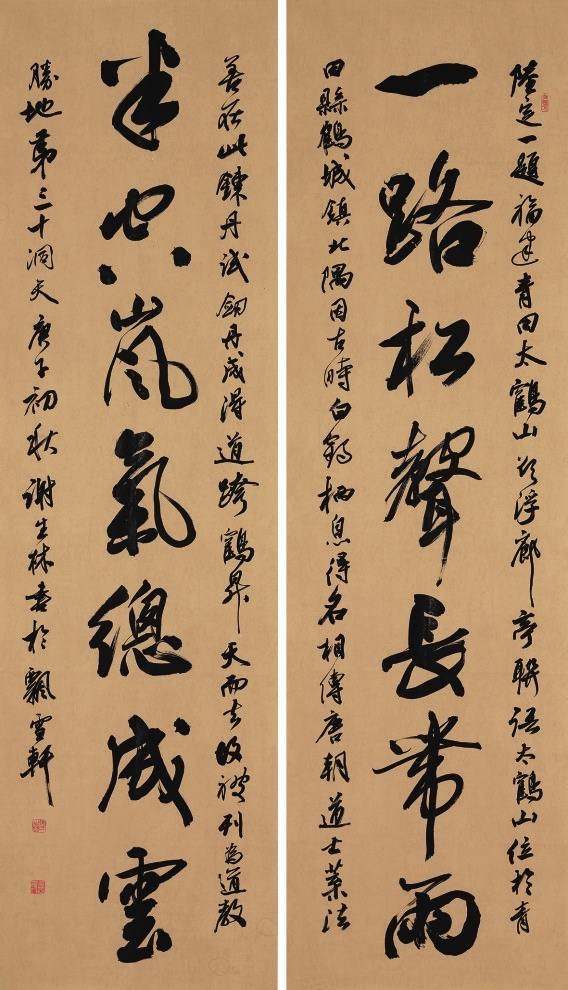 陸定一題福建青田太鶴山浮廊亭聯語太鶴山位於青
一路松聲長帶雨
田縣鶴城鎮北隅因古時白鶴栖息得名相傳唐朝道士葉法
善在此鍊丹試劍丹成得道跨鶴昇天而去後被列為道教
半空嵐氣總成雲
勝地第三十洞天庚子初秋謝生林書於飄雪軒